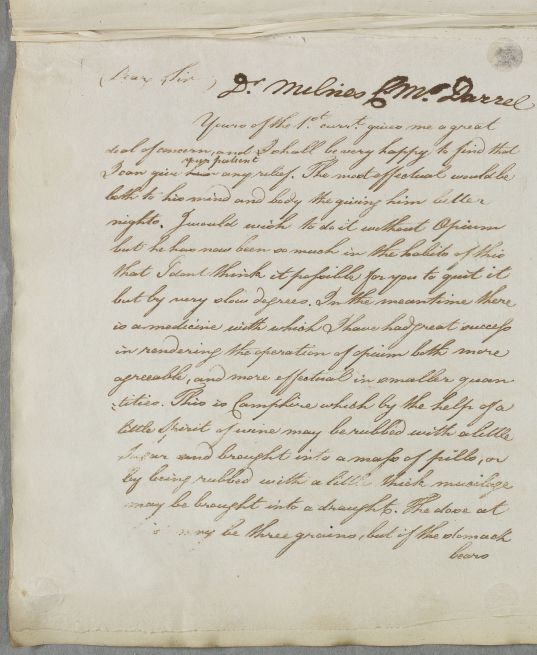 Dear Sir,
Dr. Milnes for Mr. Darrel
Yours of the 1st. currt. gives me a great
deal of concern, and I shall be very happy to find that
your patient
I can give him any relief. The most effectual would be
both to his mind and body the giving him better
nights. I would wish to do it without Opium
but he has now been so much in the habits of this
that I dont think it possible for you to quit it
but by very slow degrees. In the meantime there
is a medicine with which I have had great success
in rendering the operation of opium both more
agreeable, and more effectual in smaller quan
:tities. This is Camphire which by the help of a
little Spirit of wine may be rubbed with a little
Sugar and brought into a mass of pills, or
by being rubbed with a little thick mucilage
may be brought into a draught. The dose at
may be three grains, but if the stomach
bears